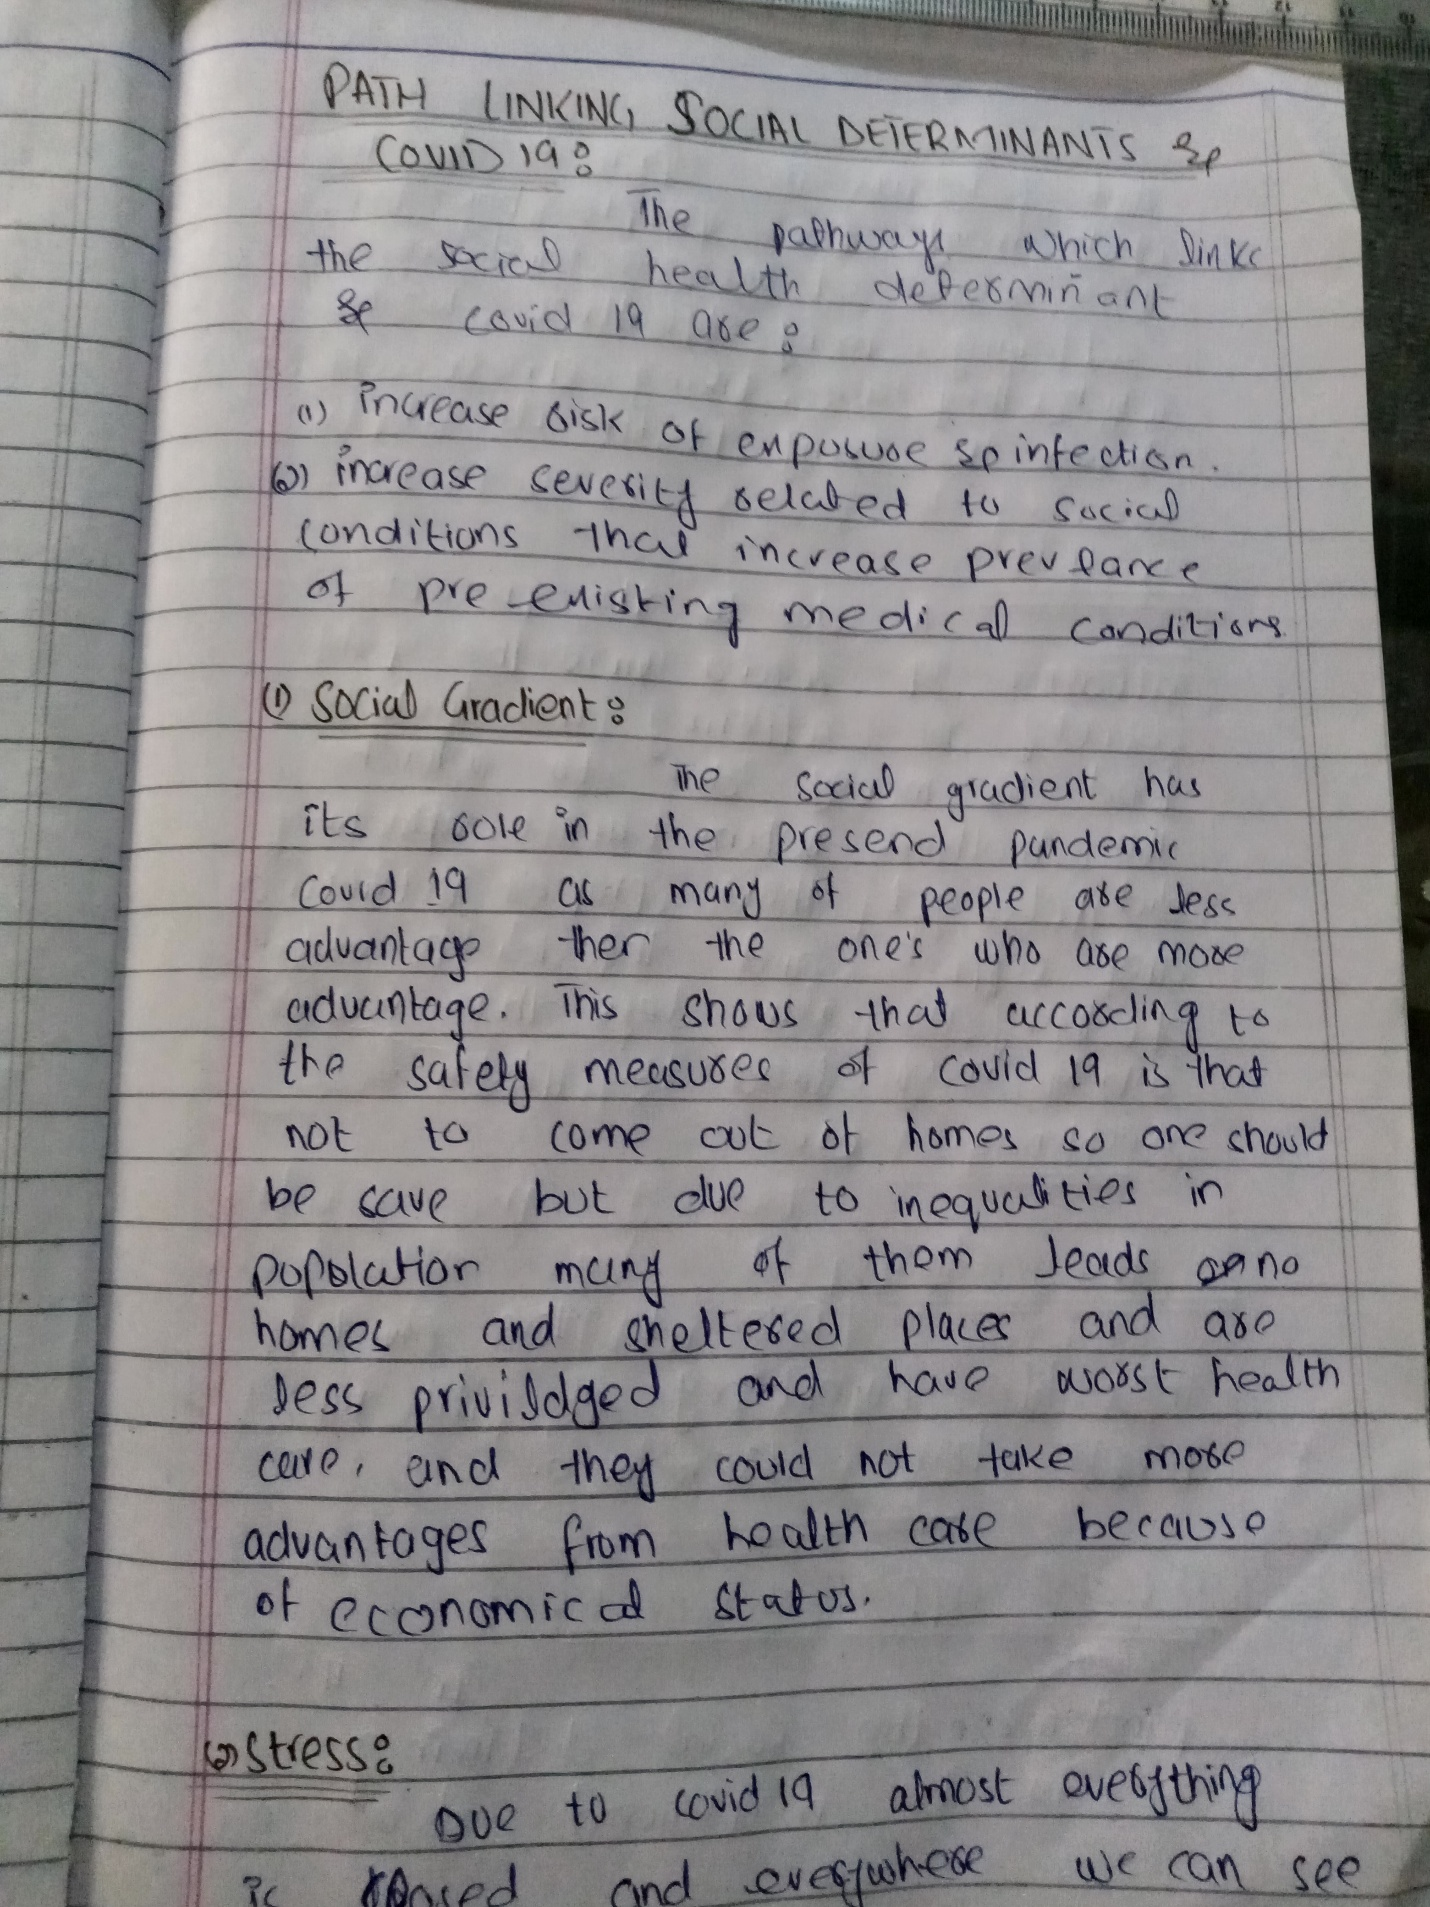 PATH LINKING SOCIAL DETERMINANTS &
COVID 19:
The pathways which links
the social health determinant
& covid 19 are:
(1) increase risk of exposure & infection.
(2) increase severity related to social
conditions that increase prevlance
of pre existing medical conditions
(1) Social Gradient:
The social gradient has
its role in the presend pandemic
Covid 19 as many of people are less
advantage then the one's who are more
advantage. This shows that according to
the safety measures of covid 19 is that
not to come out of homes so one should
be save but due to inequalities in
population many of them leads no
homes and sheltered places and are
less privildged and have worst health
care, and they could not take more
advantages from health care because
of economical status.
(2) Stress:
Due to covid 19 almost everything
is closed and everywhere we can see